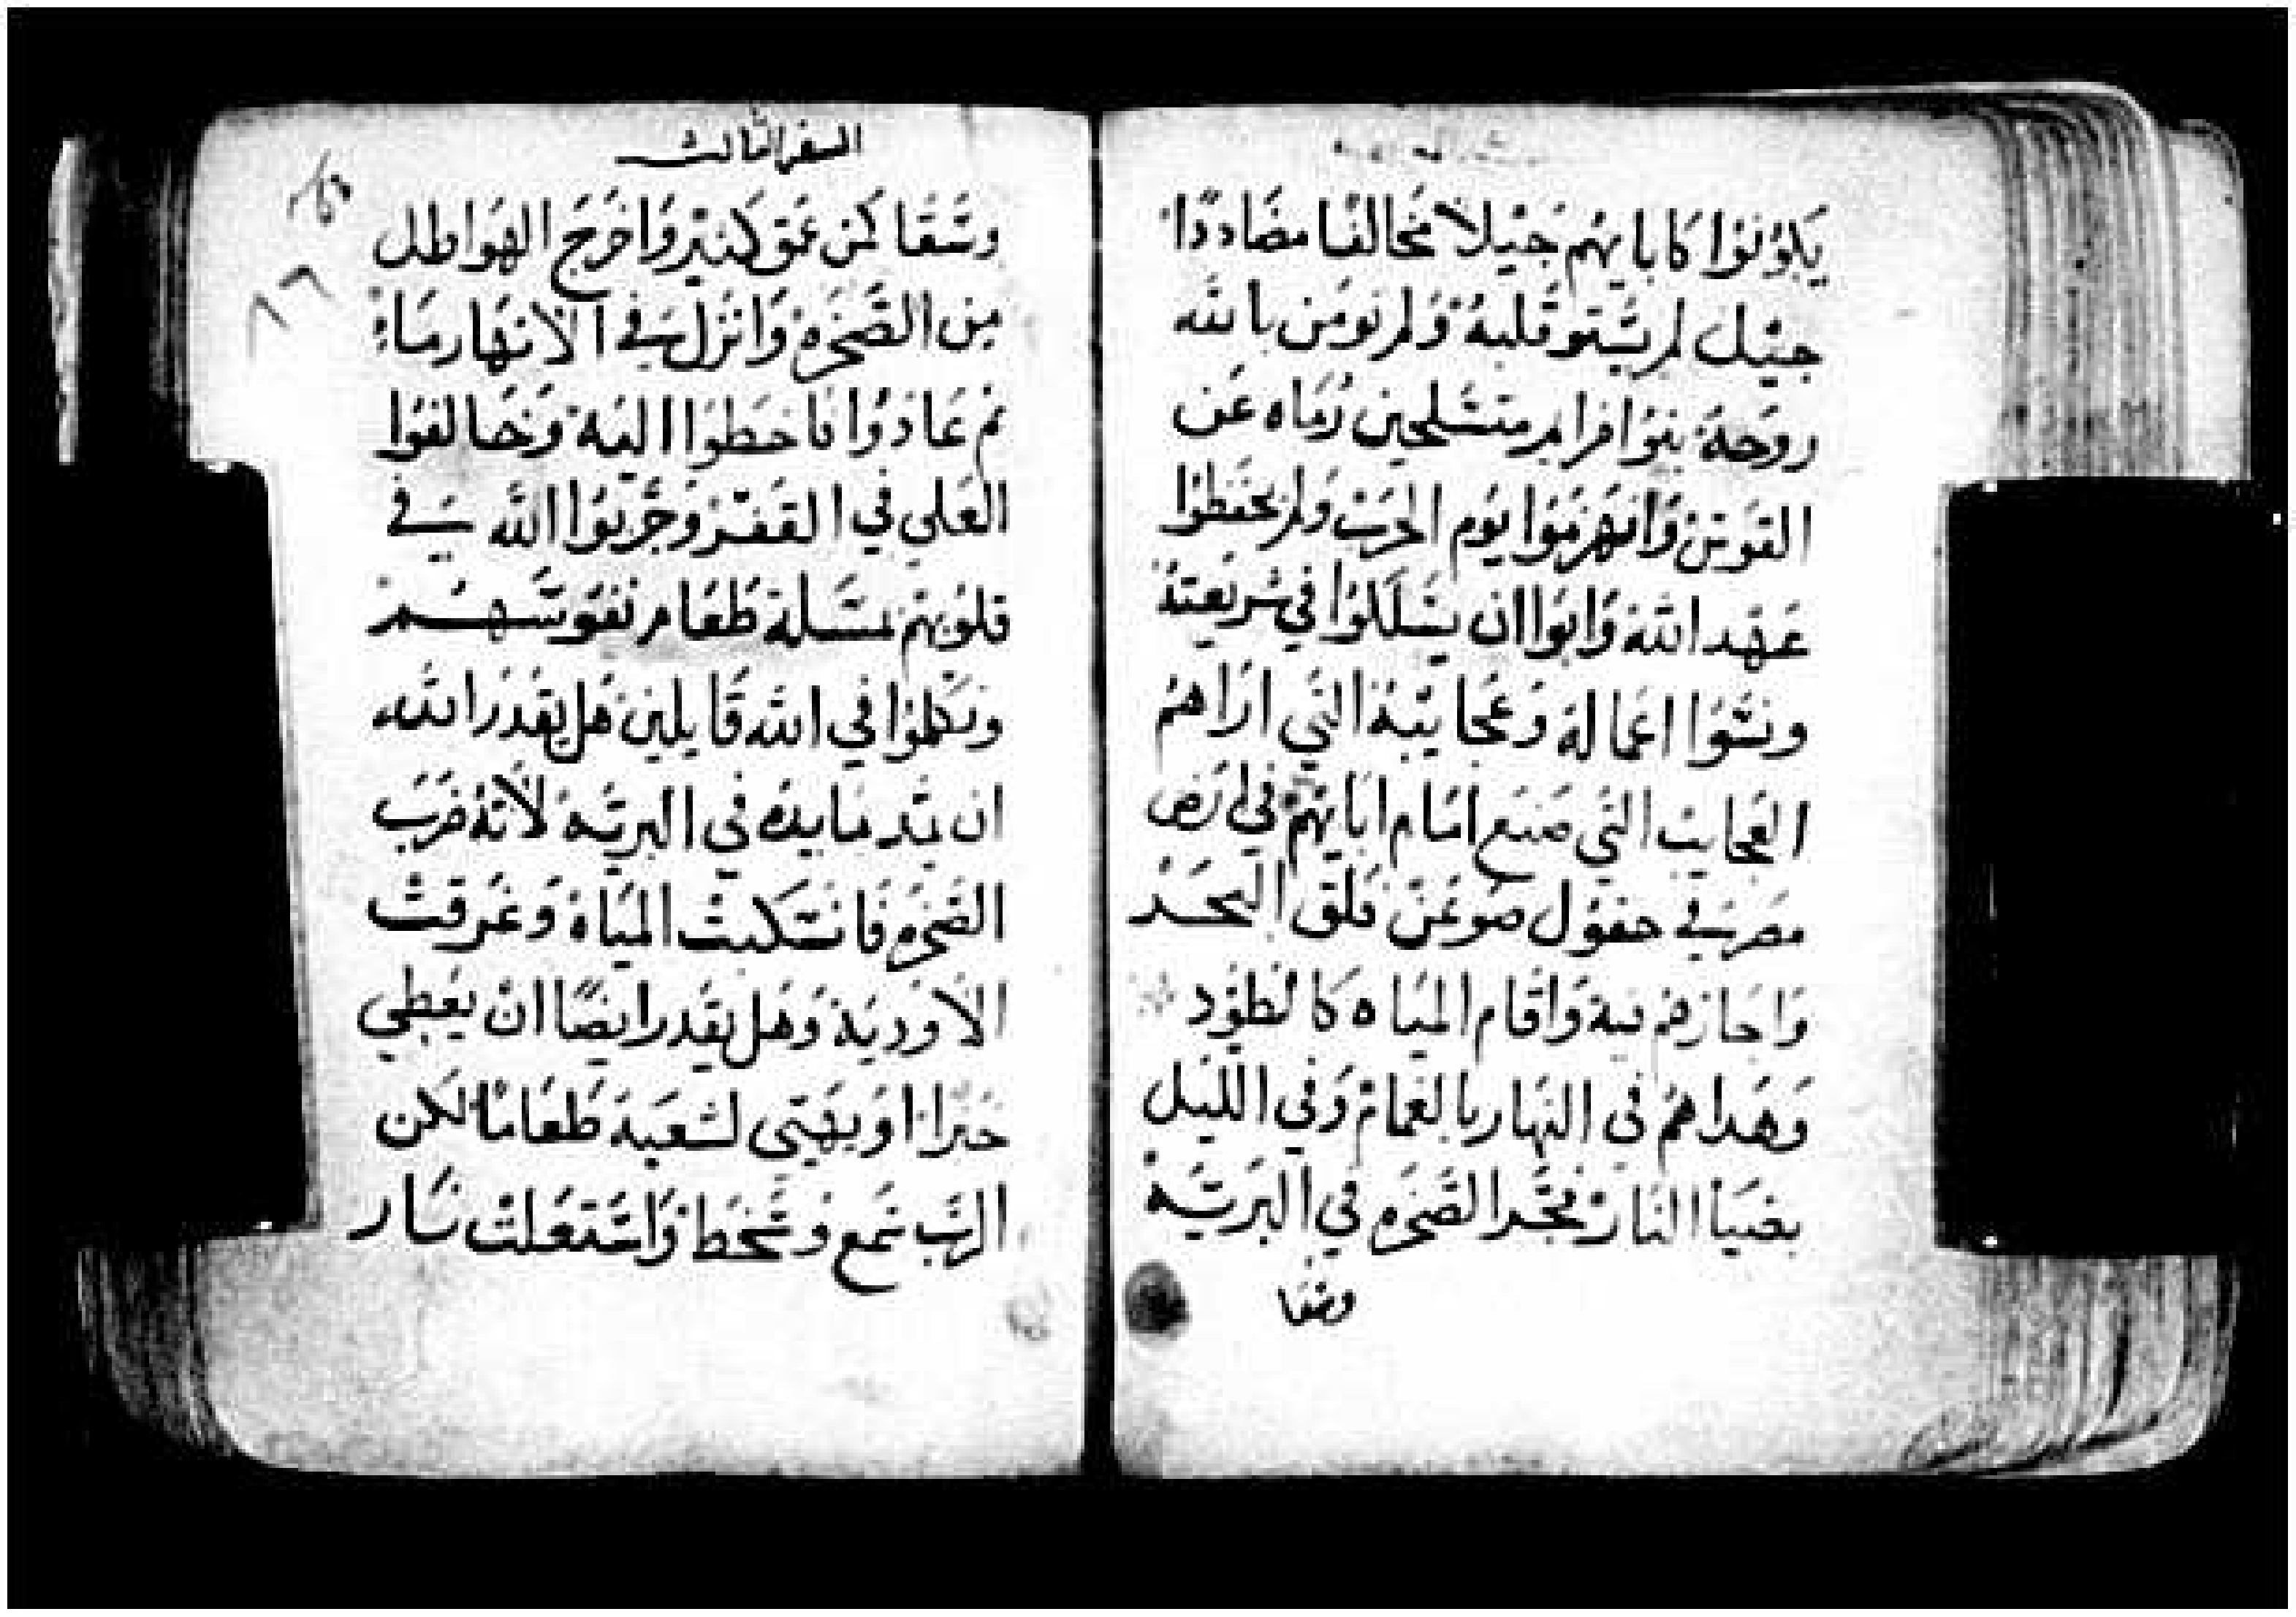 يكونوا كابايهم جيلاً مخالفا مضاددا
جيل لم يستو قلبه ولم تومن بالله
روحه بنوا افرام متسلحين رماه عن
القوس وانهزموا يوم الحرب ولم يحفظوا
عهد الله وابوا ان يسلكوا في شريعته
ونسوا اعماله وعجايبه التي اراهم
العجايب التي صنع امام ابايهم في ارض
مصر في حقول صوعن فلق البحر
واجازهم فيه واقام المياه كالطود
وهداهم في النهار بالغمام وفي الليل
بضيا النار فجر الصخره في البريه
وسقا
السفر الثالث
٨٦
وسقا كمن عمق كثير واخرج الهواطل
من الصخره وانزل في الانهار ماء
ثم عادوا فاخطوا اليه وخالفوا
العلي في القفر وجربوا الله في
قلوبهم بمسلة طعام نفوسهم
وتكلموا في الله قايلين هل يقدر الله
ان يعد مايده في البريه لانه ضرب
الصخره فانسكبت المياه وغرقت
الاوديه وهل يقدر ايضًا ان يعطي
خبزا او يهيي لشعبه طعامًا لكن
الرب سمع وسخط واشتعلت نار